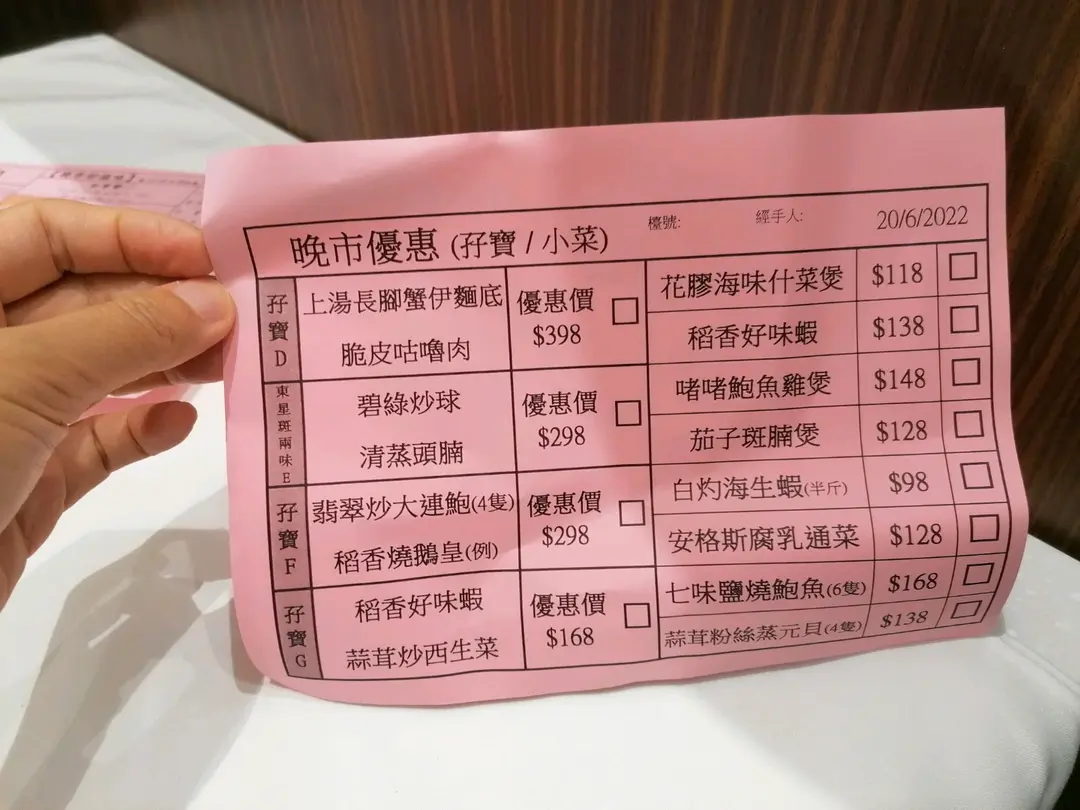 晚市優惠 (孖寶 / 小菜)
檯號:
經手人:
20/6/2022
孖寶D
上湯長腳蟹伊麵底
脆皮咕嚕肉
優惠價
$398
東星斑兩味E
碧綠炒球
清蒸頭腩
優惠價
$298
孖寶F
翡翠炒大連鮑(4隻)
稻香燒鵝皇(例)
優惠價
$298
孖寶G
稻香好味蝦
蒜茸炒西生菜
優惠價
$168
花膠海味什菜煲 $118
稻香好味蝦 $138
啫啫鮑魚雞煲 $148
茄子斑腩煲 $128
白灼海生蝦(半斤) $98
安格斯腐乳通菜 $128
七味鹽燒鮑魚(6隻) $168
蒜茸粉絲蒸元貝(4隻) $138